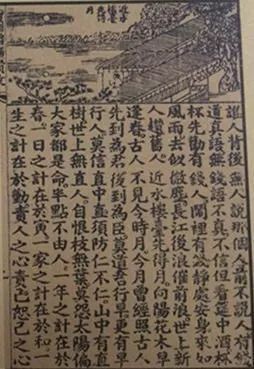 近水
樓臺
先得
月
誰人背後無人說那個人前不說人有錢
道真語無錢語不真不信但看筵中酒杯
杯先勸有錢人鬧裏有錢靜處安身來如
風雨去似微塵長江後浪催前浪世上新
人趲舊人近水樓臺先得月向陽花木早
逢春古人不見今時月今月曾經照古人
先到為君後到為臣莫道吾行早更有早
行人莫信直中直須防仁不仁山中有直
樹世上無直人自恨枝無葉莫怨太陽偏
大家都是命半點不由人一年之計在於
春一日之計在於寅一家之計在於和一
生之計在於勤責人之心責己恕己之心